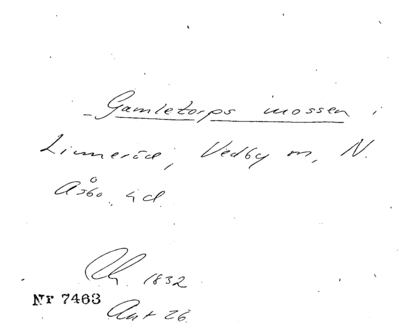 Gamletorps mossen i
Linneröd, Vedby sn, N.
Åsbo hd.
Rh. 1832
Nr 7463
Ant 26